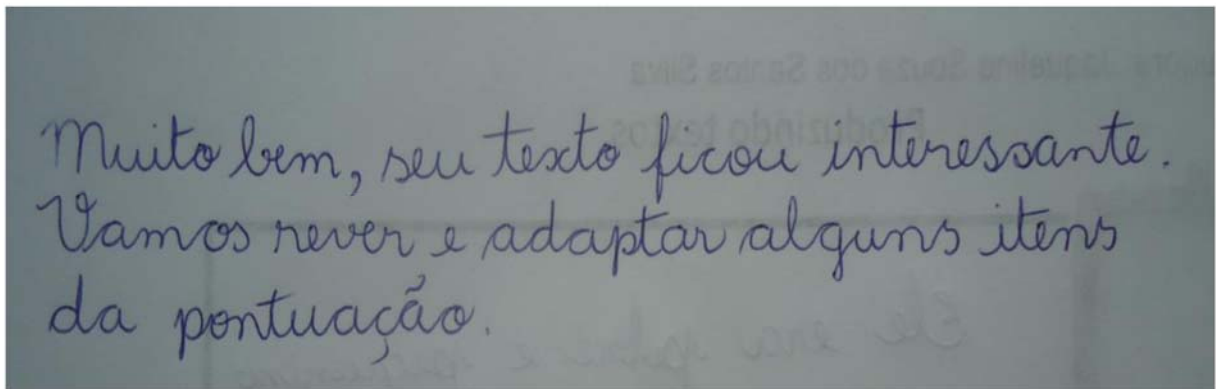 Muito bem, seu texto ficou interessante.
Vamos rever e adaptar alguns itens
da pontuação.